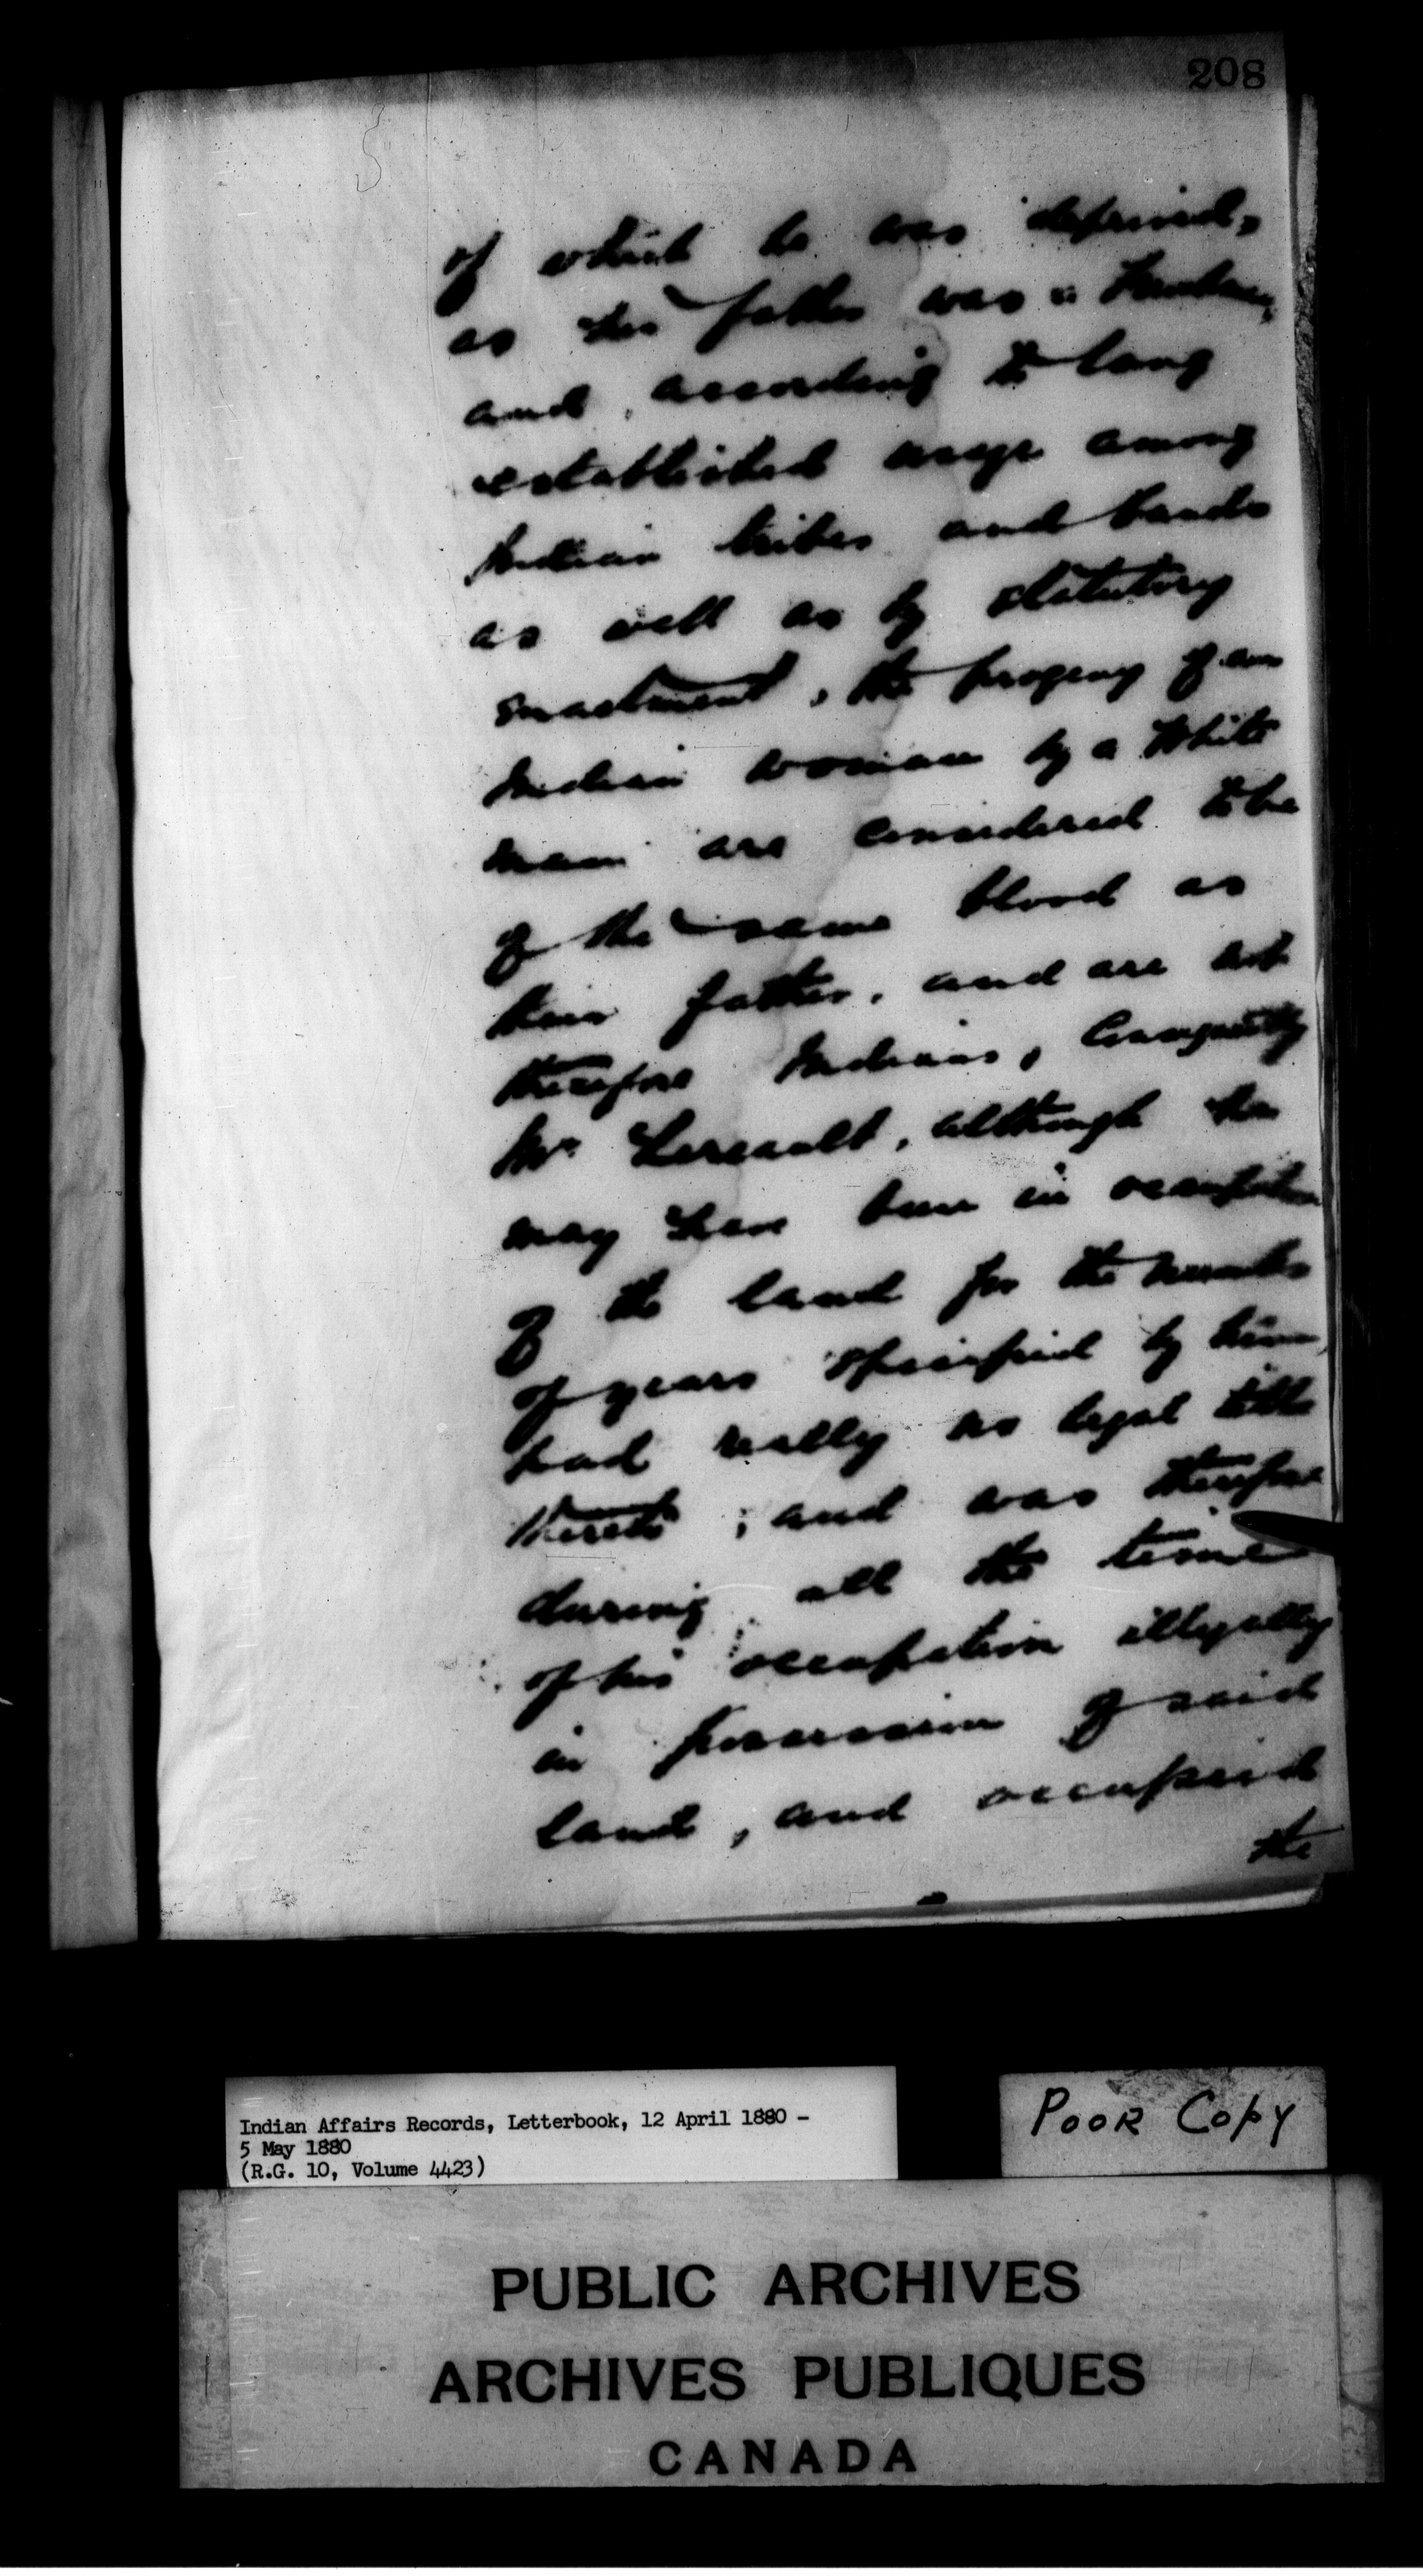 208
of which he was deprived,
as his father was a
and, according to long
established usage among
Indian tribes and bands
as well as by statutory
enactment, the progeny of an
Indian woman by a White
man are considered to be
of the same blood as
their father, and are not
therefore Indians, Consequently
Mr. although he
may have been in occupation
of the land for the number
of years specified by him,
had really no legal title
thereto; and was therefore
during all the time
of his occupation illegally
in possession of said
land, and occupied
the
Indian Affairs Records, Letterbook, 12 April 1880 -
5 May 1880
(R.G. 10, Volume 4423)
POOR COPY
PUBLIC ARCHIVES
ARCHIVES PUBLIQUES
CANADA